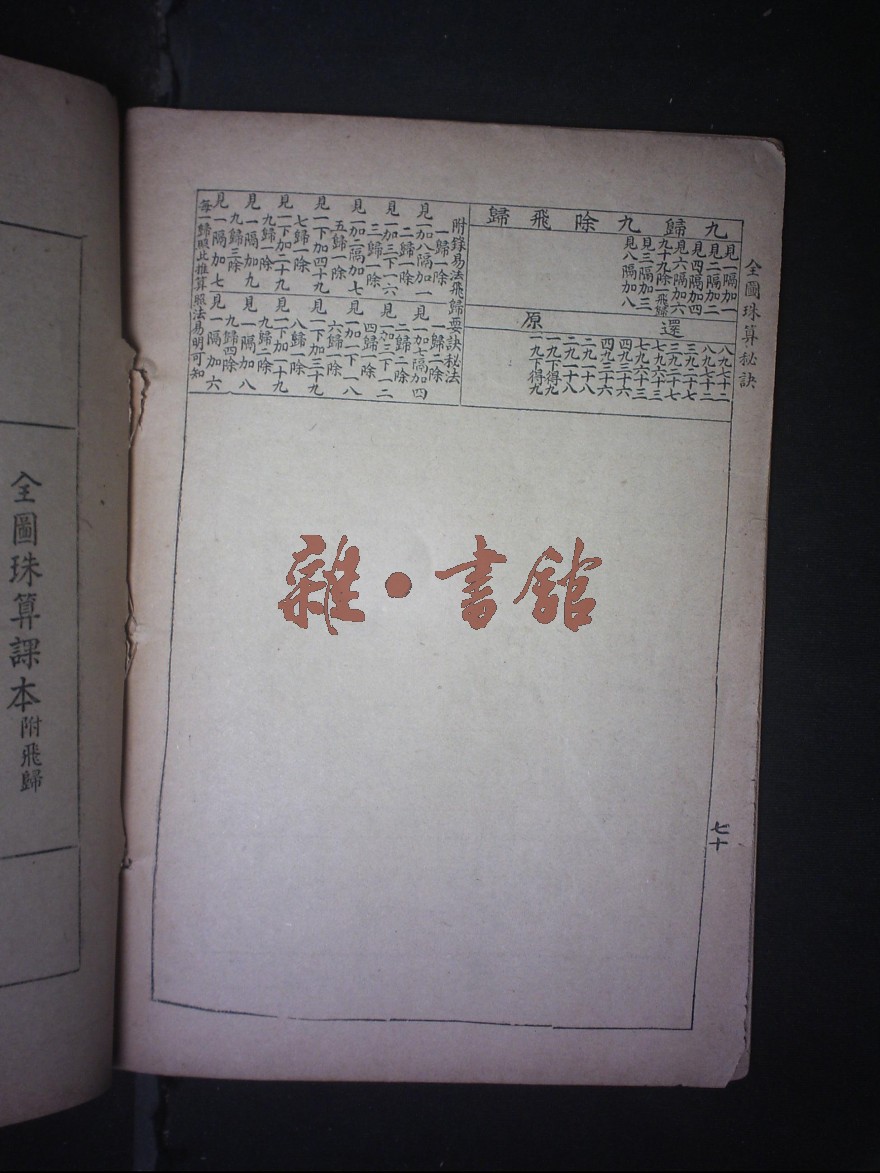 全圖珠算秘訣
九歸九除飛歸
見一隔加一
見二隔加二
見四隔加四
見六隔加六
九十九除一飛歸
見三隔加三
見八隔加八
還原
八九七十二
八九七十二
三九二十七
三九二十七
七九六十三
七九六十三
四九三十六
四九三十六
二九一十八
二九一十八
一九下得九
一九下得九
附錄易法飛歸要訣秘法
一歸一除
見一加八隔加一
二歸一除
見一加三下一六
三歸一除
見一加二隔加七
五歸一除
見一下加四十九
七歸一除
見一下加二十九
九歸一除
見一隔加九
九歸三除
見一隔加七
一歸一除
見一加七隔加四
二歸二除
見一加三下一二
四歸一除
見一加一下一八
六歸一除
見一下加三十九
八歸一除
見一下加一十九
九歸二除
見一隔加八
九歸四除
見一隔加六
每一歸照此推算照法易明可知
七十
全圖珠算課本附飛歸
雜·書館